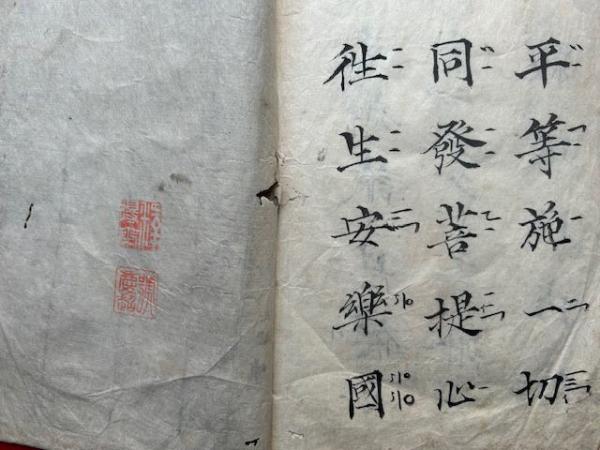 平等施一切
同發菩提心
徃生安樂國